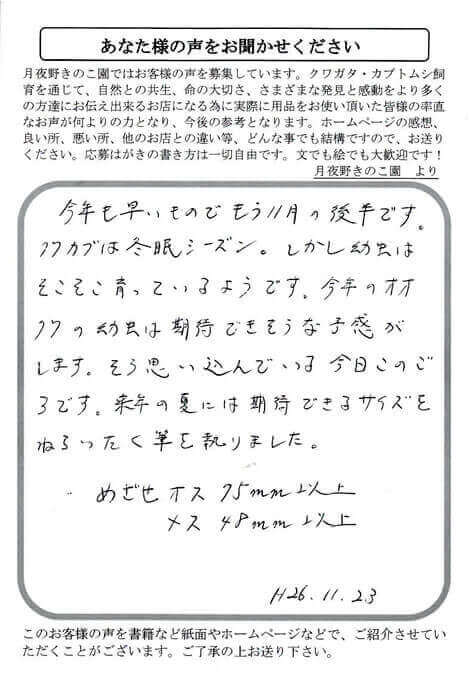 あなた様の声をお聞かせください
月夜野きのこ園ではお客様の声を募集しています。クワガタ・カブトムシ飼
育を通じて、自然との共生、命の大切さ、さまざまな発見と感動をより多く
の方達にお伝え出来るお店になる為に実際に用品をお使い頂いた皆様の率直
なお声が何よりの力となり、今後の参考となります。ホームページの感想、
良い所、悪い所、他のお店との違い等、どんな事でも結構ですので、お送り
ください。応募はがきの書き方は一切自由です。文でも絵でも大歓迎です！
月夜野きのこ園　より
今年も早いものでもう11月の後半です。
クワカブは冬眠シーズン。しかし幼虫は
そこそこ育っているようです。今年のオオ
クワの幼虫は期待できそうな予感が
します。そう思い込んでいる今日このご
ろです。来年の夏には期待できるサイズを
ねらったく筆を執りました。
めざせオス 75mm以上
メス 48mm以上
H26.11.23
このお客様の声を書籍など紙面やホームページなどで、ご紹介させてい
ただくことがございます。ご了承の上お送り下さい。